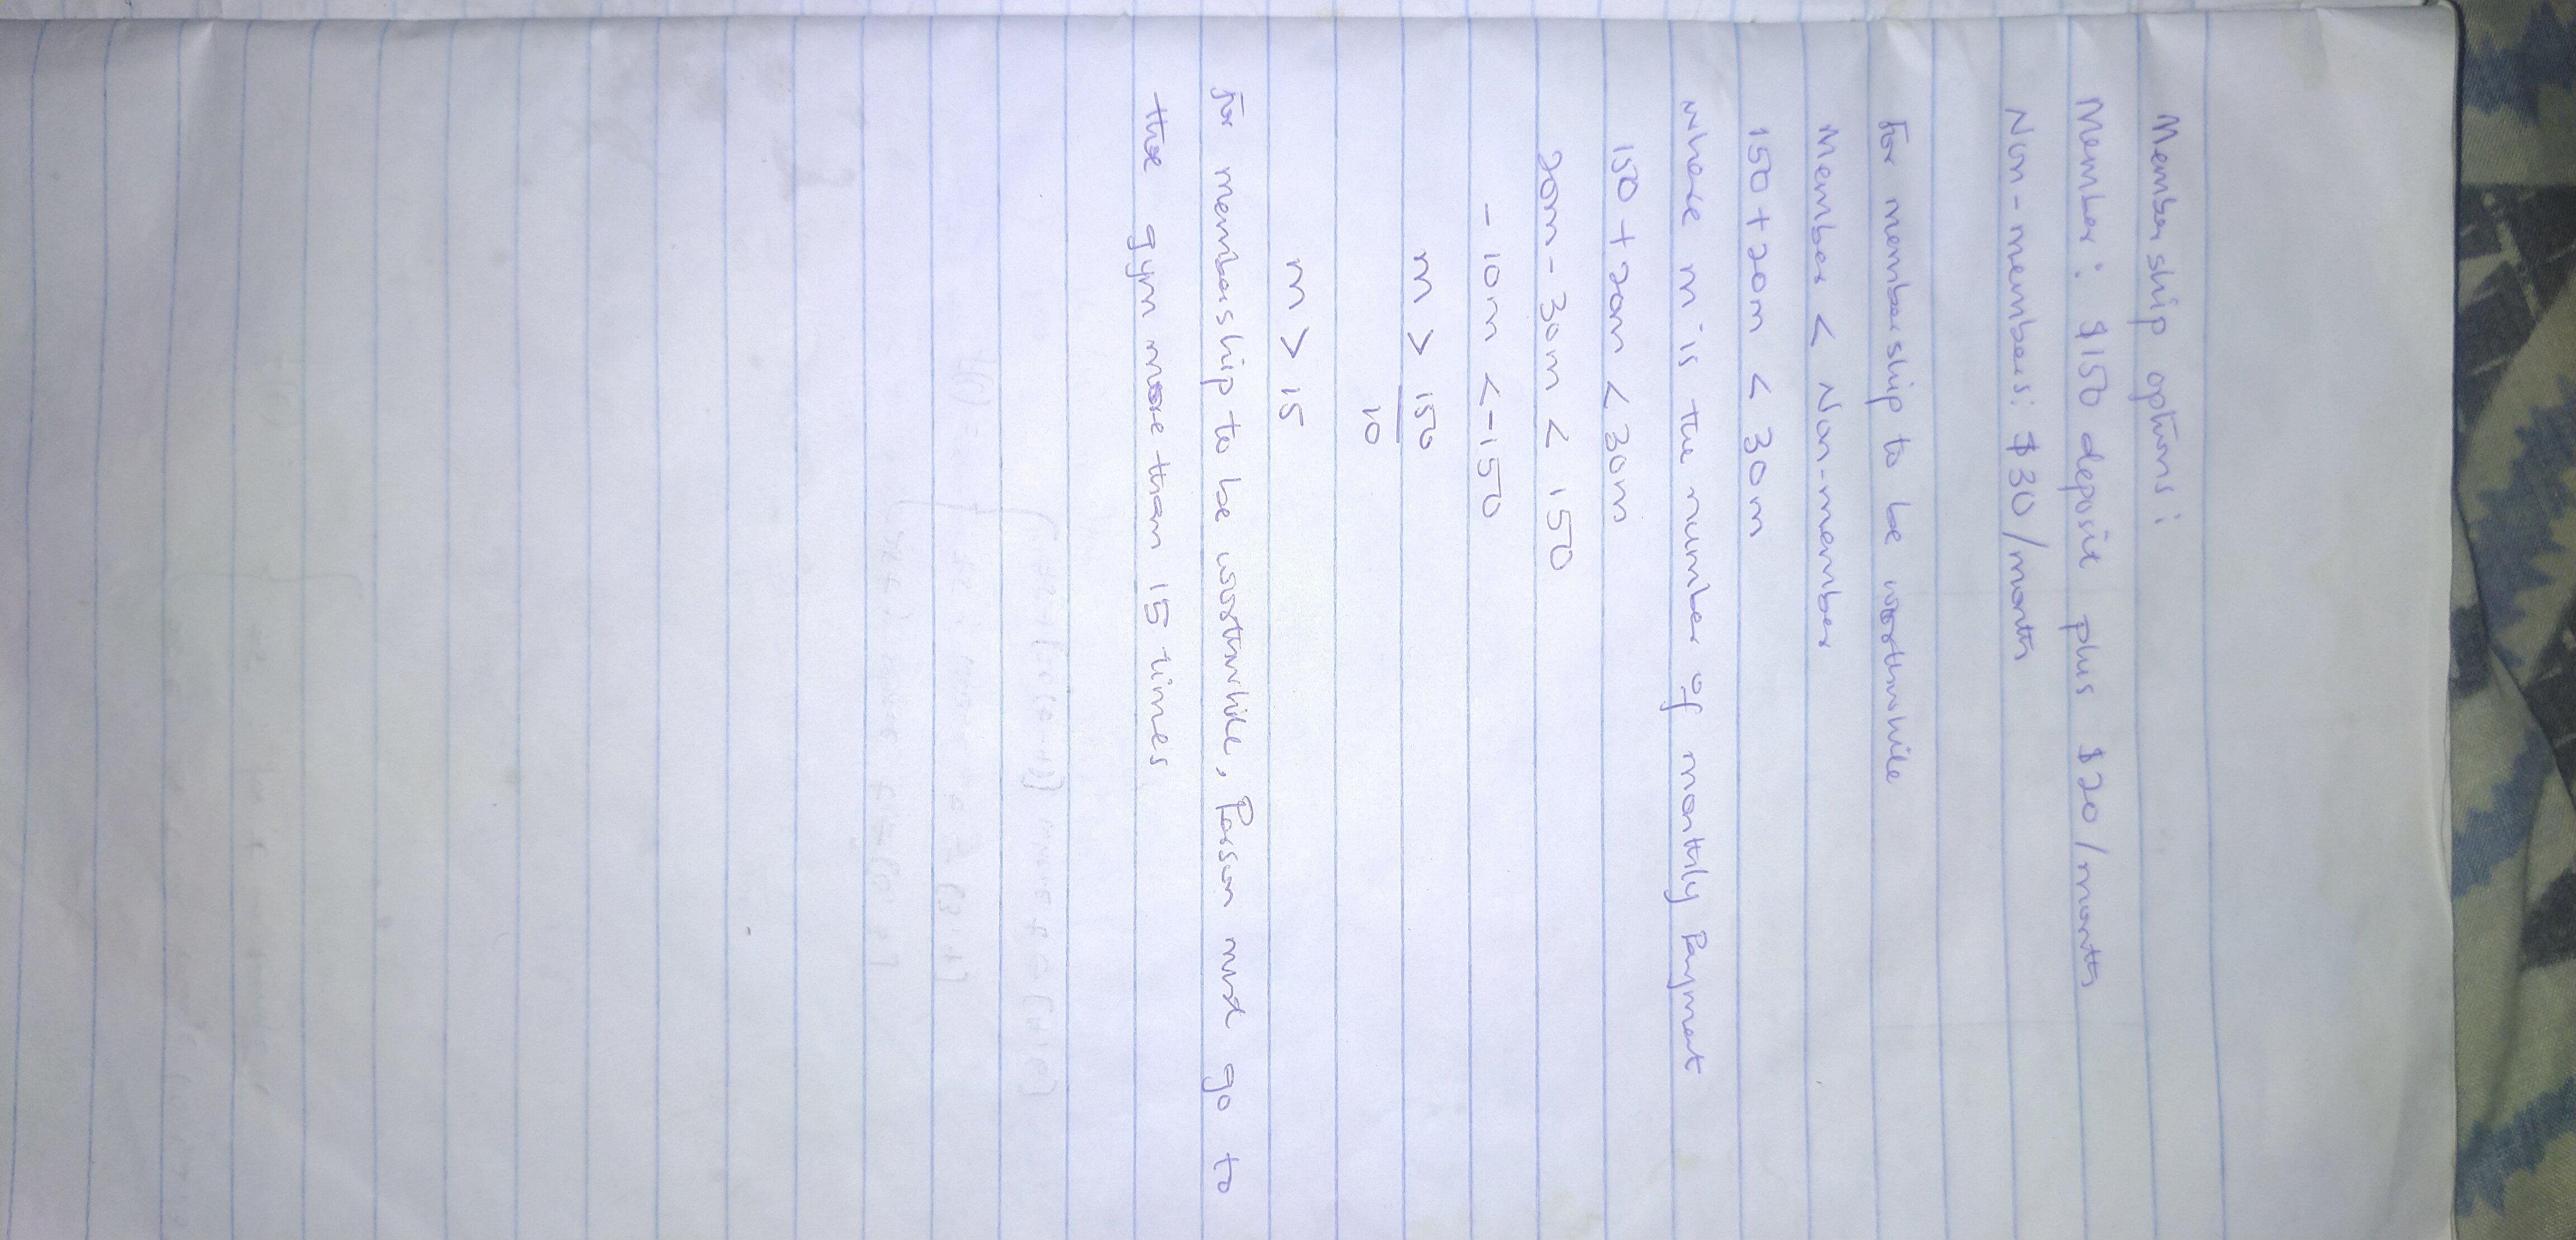 Membership options:
Member: $150 deposit plus $20/month
Non-members: $30/month
For membership to be worthwhile
Member < Non-member
150 + 20m < 30m
where m is the number of monthly Payment
150 + 20m < 30m
20m - 30m < 150
- 10m < -150
m > 150
10
m > 15
For membership to be worthwhile, Person must go to
the gym more than 15 times